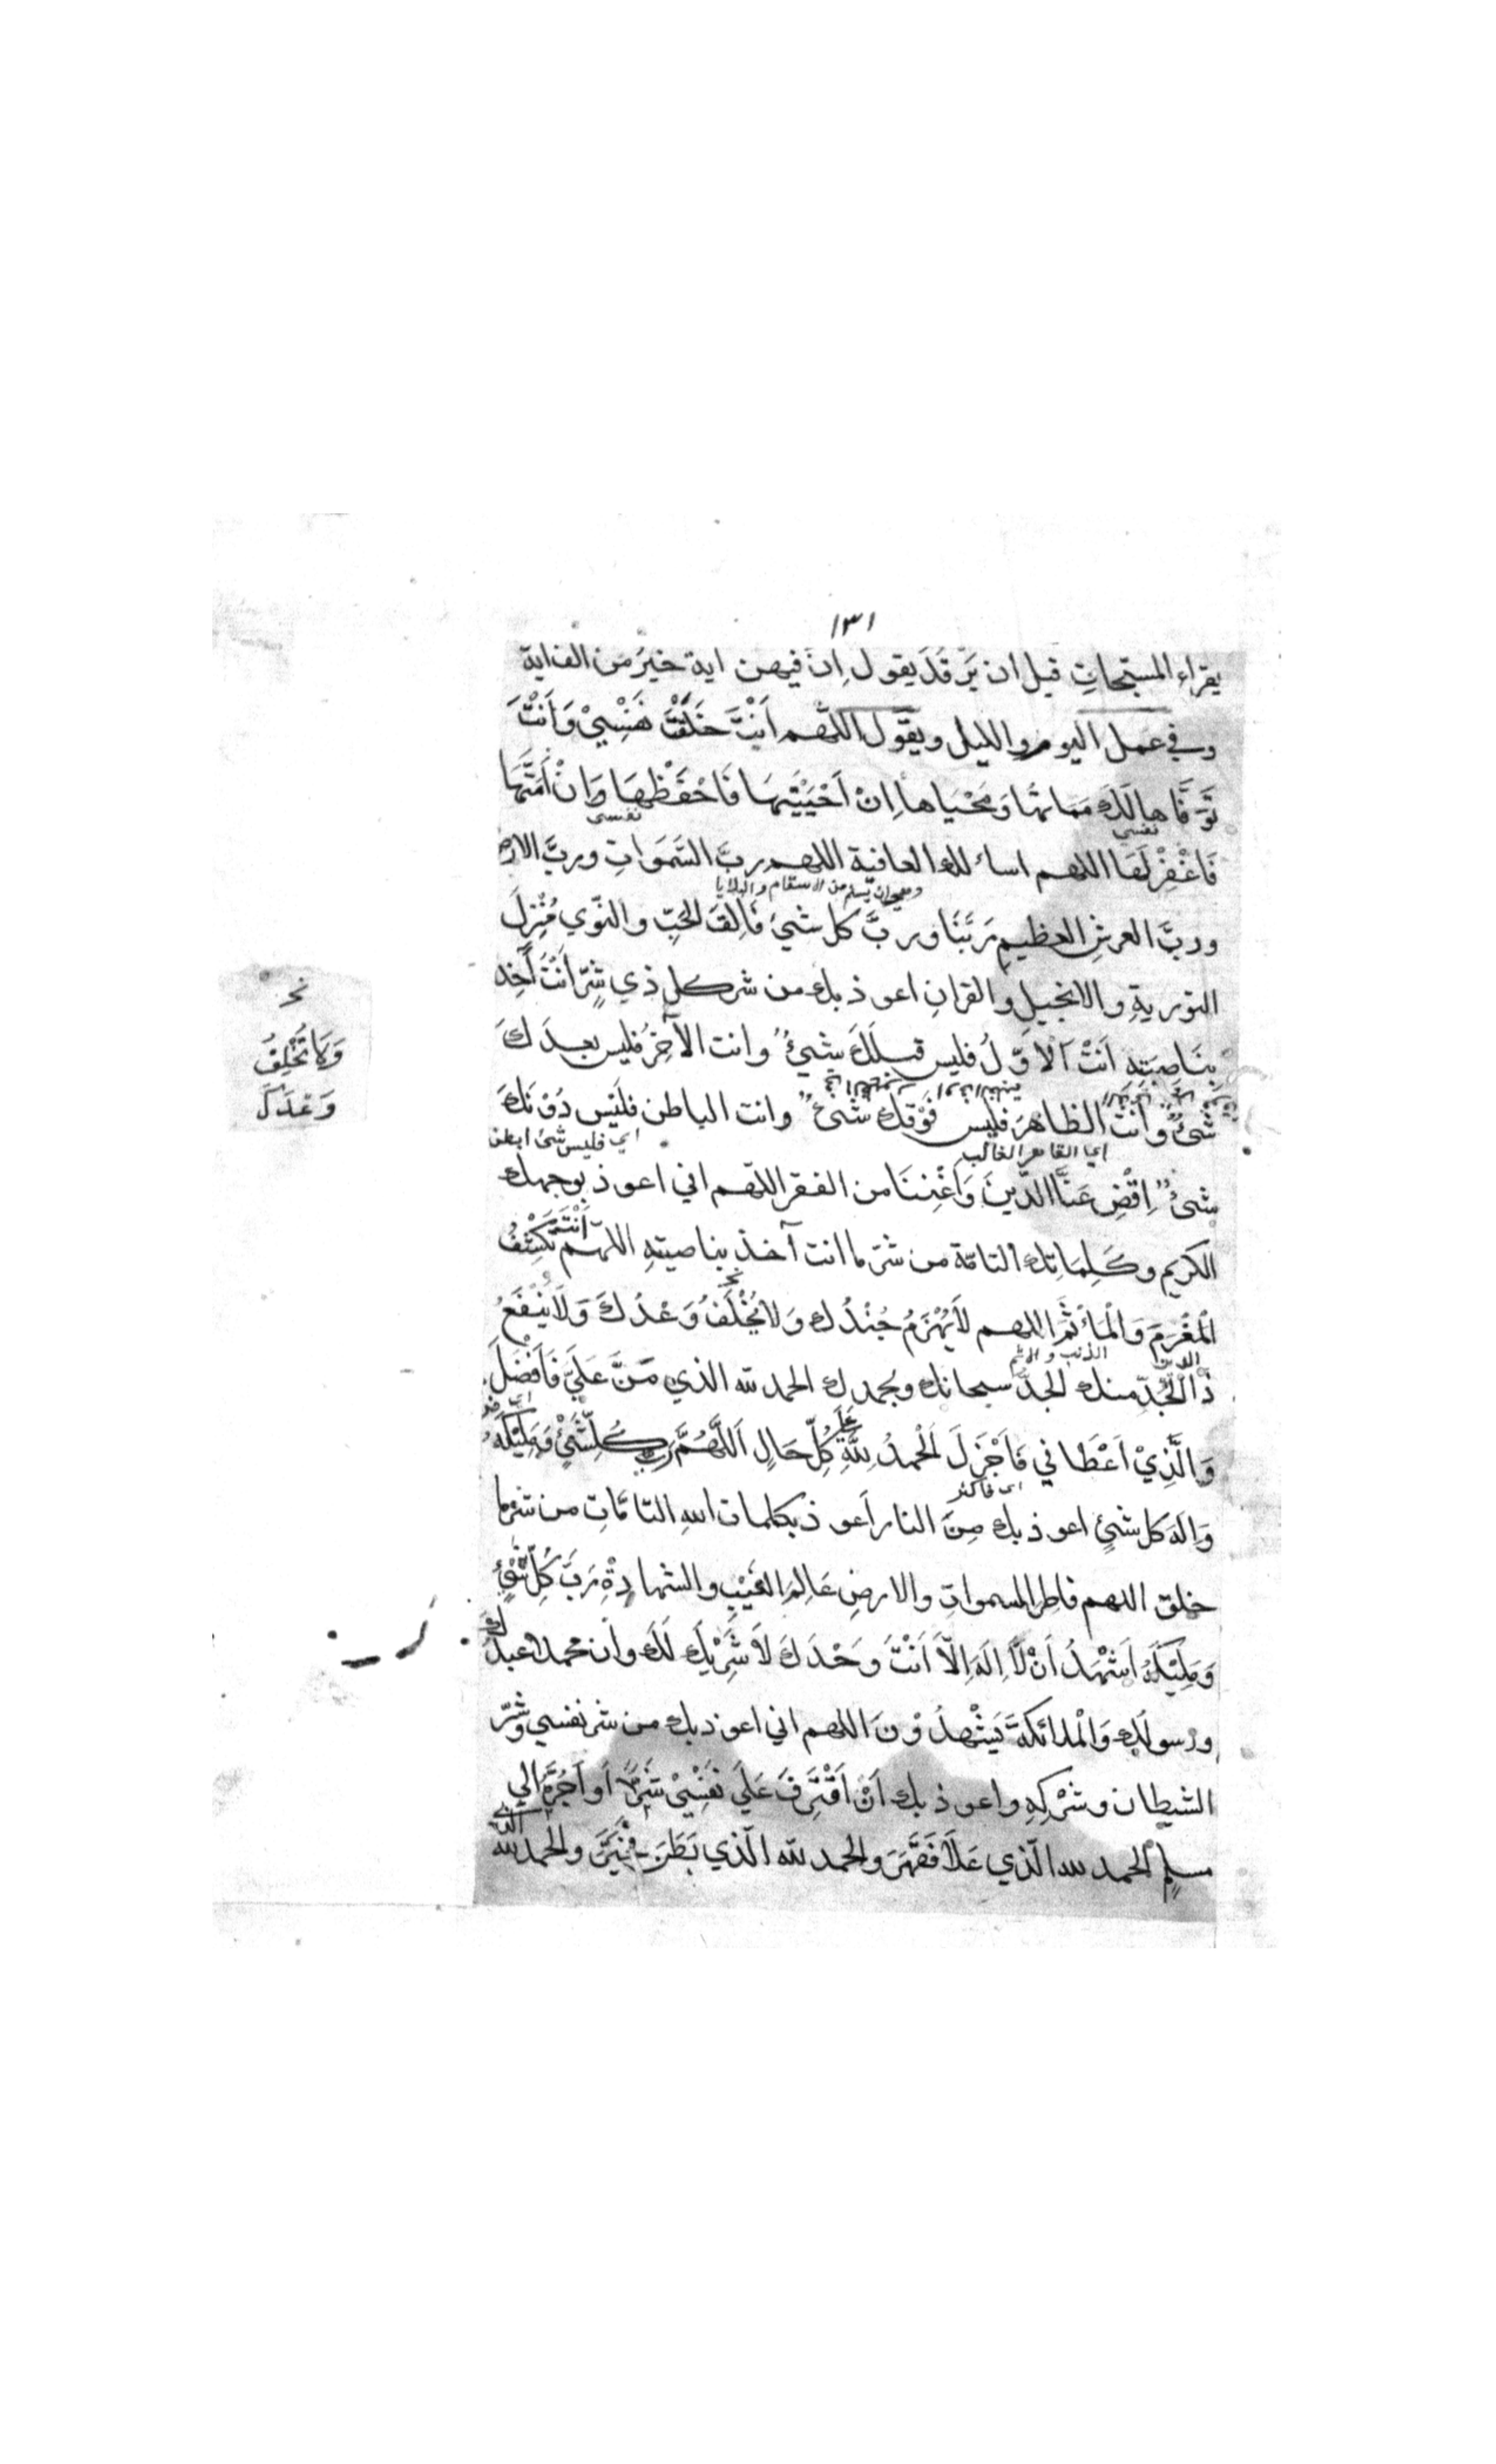 ١٣١
يقراء المسبحات قبل ان يَرقُدَ يقول اِنّ فيهن اية خيرٌ من الف اية
وفي عمل اليوم والليل ويقول اللّهم اَنْتَ خَلَقْتَ نَفْسِيْ وَاَنْتَ
تَوَفَّاها لَكَ مَمَاتُها وَمَحْيَاها اِنْ اَحْيَيْتَهَا فَاحْفَظْهَا وَاِنْ اَمَتَّهَا
نفسي نفسي
فَاغْفِرْ لَهَا اللهم اسائلك العافية اللهم ربَّ السَّمَوَاتِ وربَّ الارض
وهي ان يسلم من الاسقام والبلايا
وربَّ العرشِ العظيمِ رَبَّنَا وربَّ كل شيئ فَالِقَ الحَبِّ والنَّوي مُنْزِلَ
التوريةِ والانجيلِ والقرانِ اعوذ بك من شر كل ذي شرٍّ اَنْتَ آخِذ
بِنَاصِيَتِهِ اَنْتَ الاوّلُ فليس قبلَكَ شيئٌ وانت الآخِرُ فليس بعدَكَ
شيئٌ وانت الظاهرَ فليس فَوْقَكَ شَيْئٌ وانت الباطن فلَيْس دُوْنَكَ
اي القاهر الغالب اي فليس شئ ابطن
شيئٌ اِقْضِ عَنَّا الدَّينَ وَاَغْنِنَا من الفقر اللّهم اني اعوذ بوجهك
الكريم وكَلِمَاتِك التامّة من شرّ ما انت آخذ بناصيتهِ اللهّم اَنْتَ تَكْشِفُ
الْمَغْرَمَ وَالْمَأْثَمَ اللهم لَايُهْزَمُ جُنْدُك وَلايُخْلَفُ وَعْدُكَ وَلَايَنْفَعُ
الدين الذنب والاثم
نخـ
وَلَا تُخْلِفُ
وَعْدَكَ
ذَا الْجَدِّ منك الجدُّ سبحانك وبحمدك الحمد لله الذي مَنَّ عَلَيَّ فَاَفْضَلَ
وَالَّذِيْ اَعْطَاني فَاَجْزَلَ اَلْحمدُ لِلّهِ عَلَى كُلِّ حَالٍ اَللَّهُمَّ رَبَّ كُلِّ شَيْئٍ وَمَلِيْكَهُ
اي فاكثر
وَاِلَهَ كل شيئٍ اعوذ بك مِنَ النار اَعوذ بكلمات اللهِ التامَّاتِ من شر ما
خلق اللهم فاطر السمواتِ والارضِ عَالِمَ الغَيْبِ والشهادةِ رَبَّ كُلِّ شَيْئٍ
وَمَلِيْكَهُ اَشْهَدُ اَنْ لَّا اِلَهَ اِلَّا اَنْتَ وَحْدَكَ لَا شَرِيْكَ لَكَ وان محمدا عبدُك
ورسولُك وَالْملائكةَ يَشْهدُوْنَ اللهم اني اعوذ بك من شر نفسي وشرِّ
الشيطان وشِرْكِهِ واعوذ بك اَنْ اَقْتَرِفَ عَلَي نَفْسِيْ شَرًّا اَو اَجُرَّهُ الي
مسلِمٍ الحمد لله الّذي عَلَا فَقَهَرَ والحمد لله الّذي بَطَنَ فَخَبَرَ والحمد لله الذي